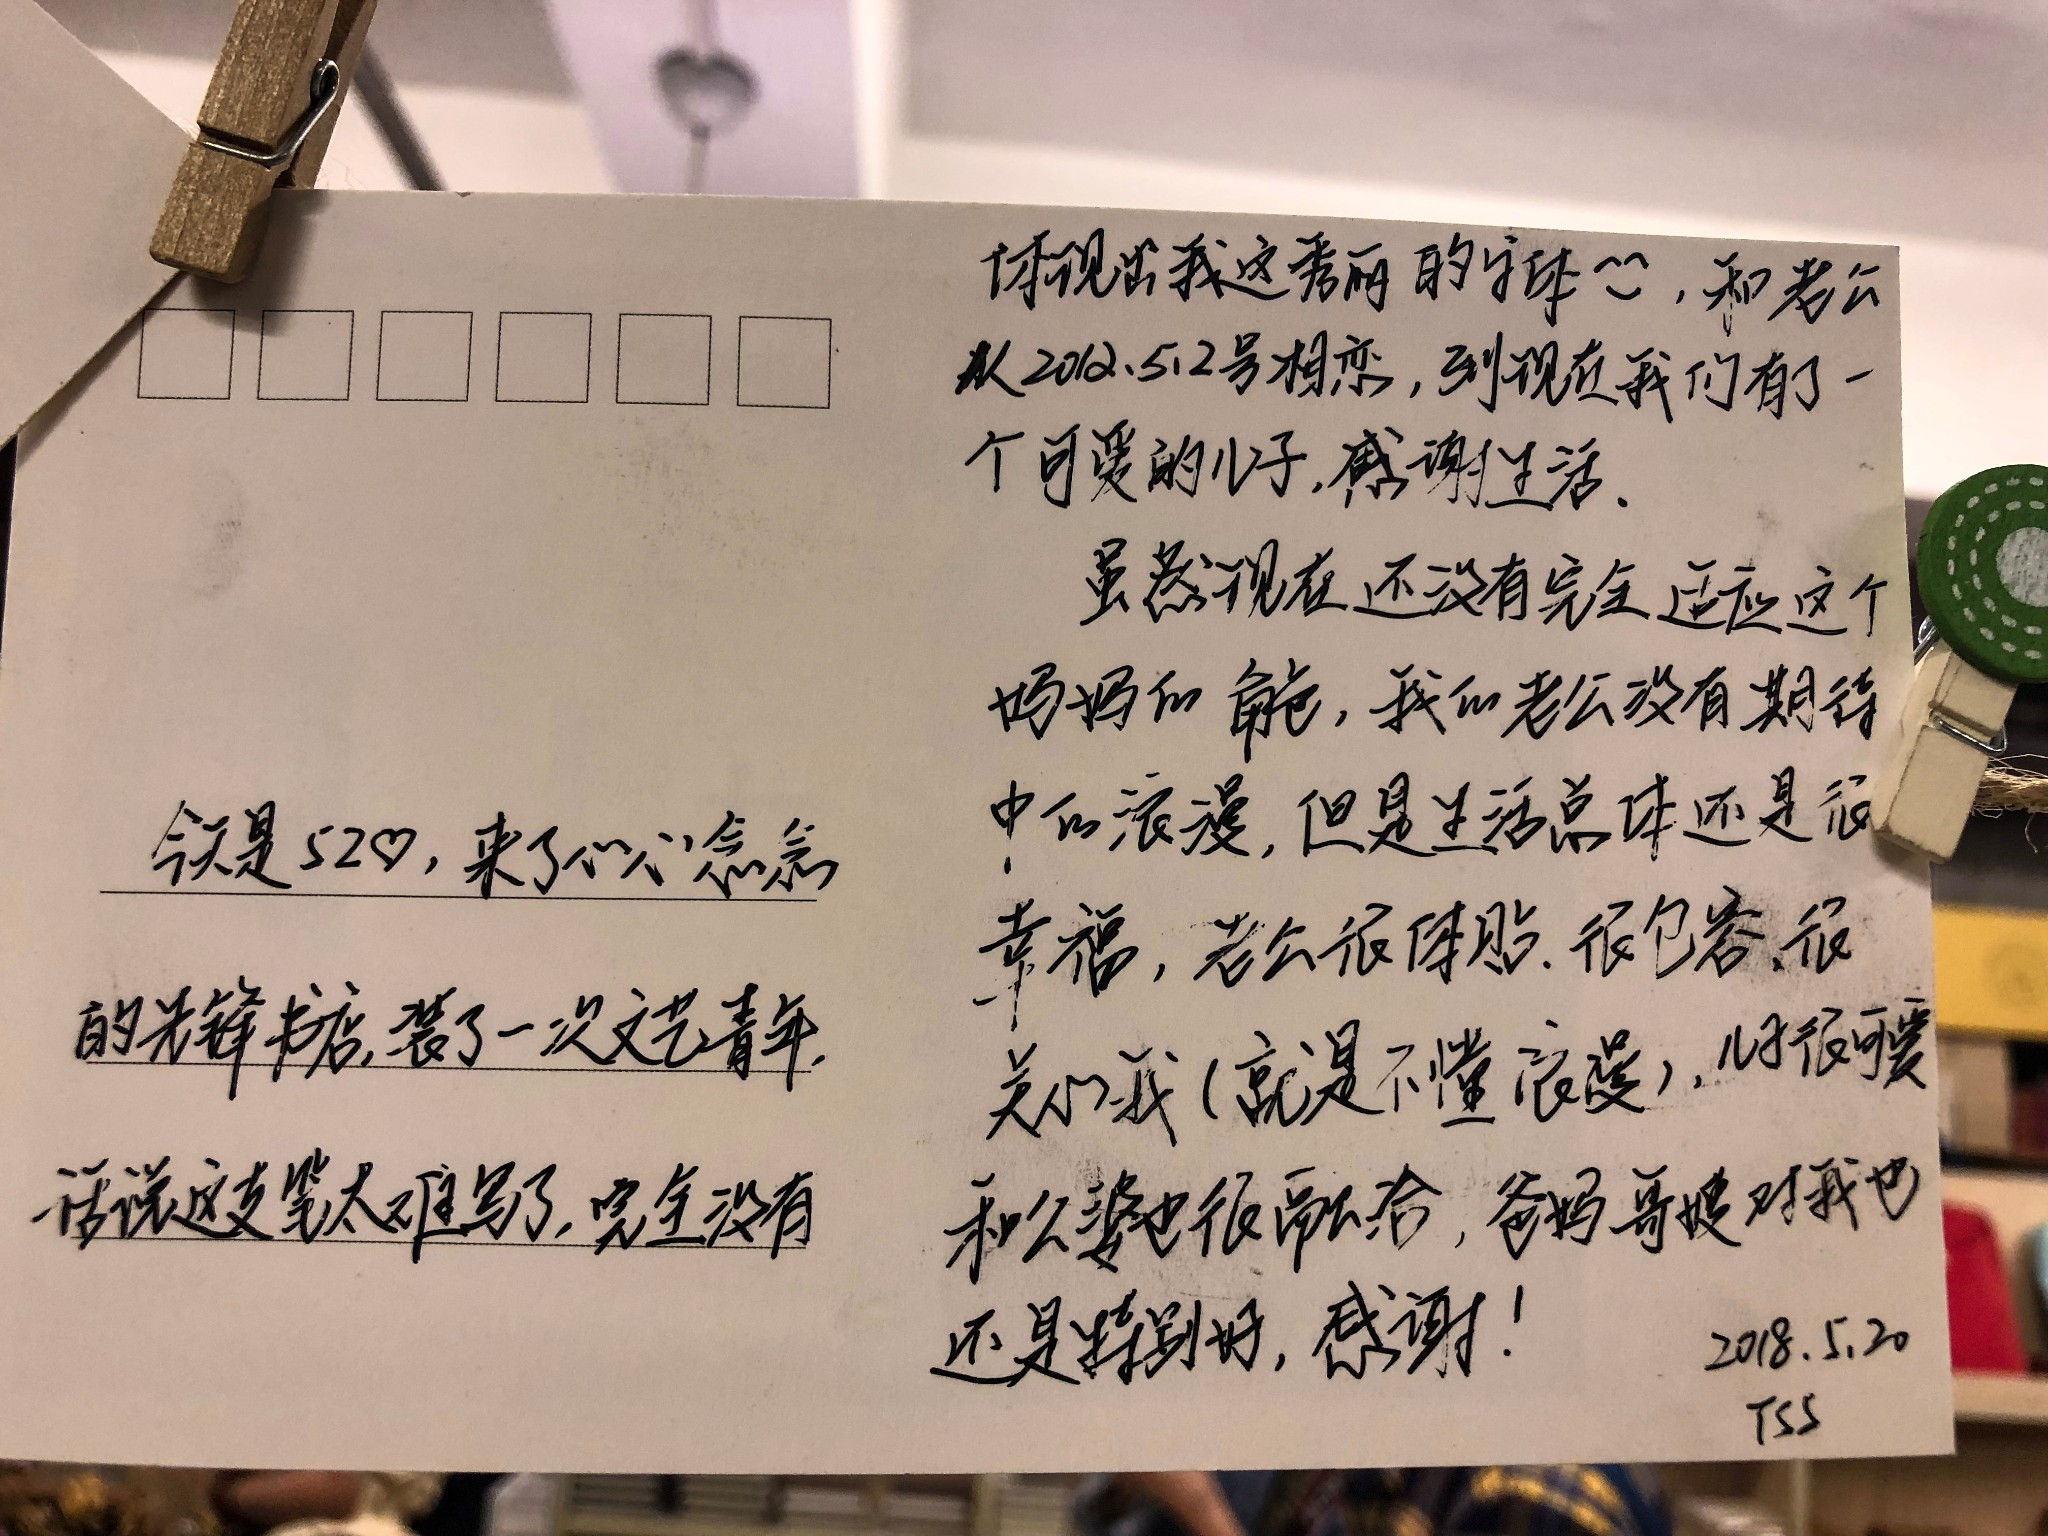 今天是520♡，来了心心念念
的先锋书店，装了一次文艺青年，
话说这支笔太难写了，完全没有
体现出我这秀丽的字体~~，和老公
从2012.5.2号相恋，到现在我们有了一
个可爱的儿子，感谢生活.
虽然现在还没有完全适应这个
妈妈的角色，我的老公没有期待
中的浪漫，但是生活总体还是很
幸福，老公很体贴、很包容、很
关心我（就是不懂浪漫），儿子很可爱
和公婆也很融洽，爸妈哥嫂对我也
还是特别好，感谢！
2018.5.20
TSS